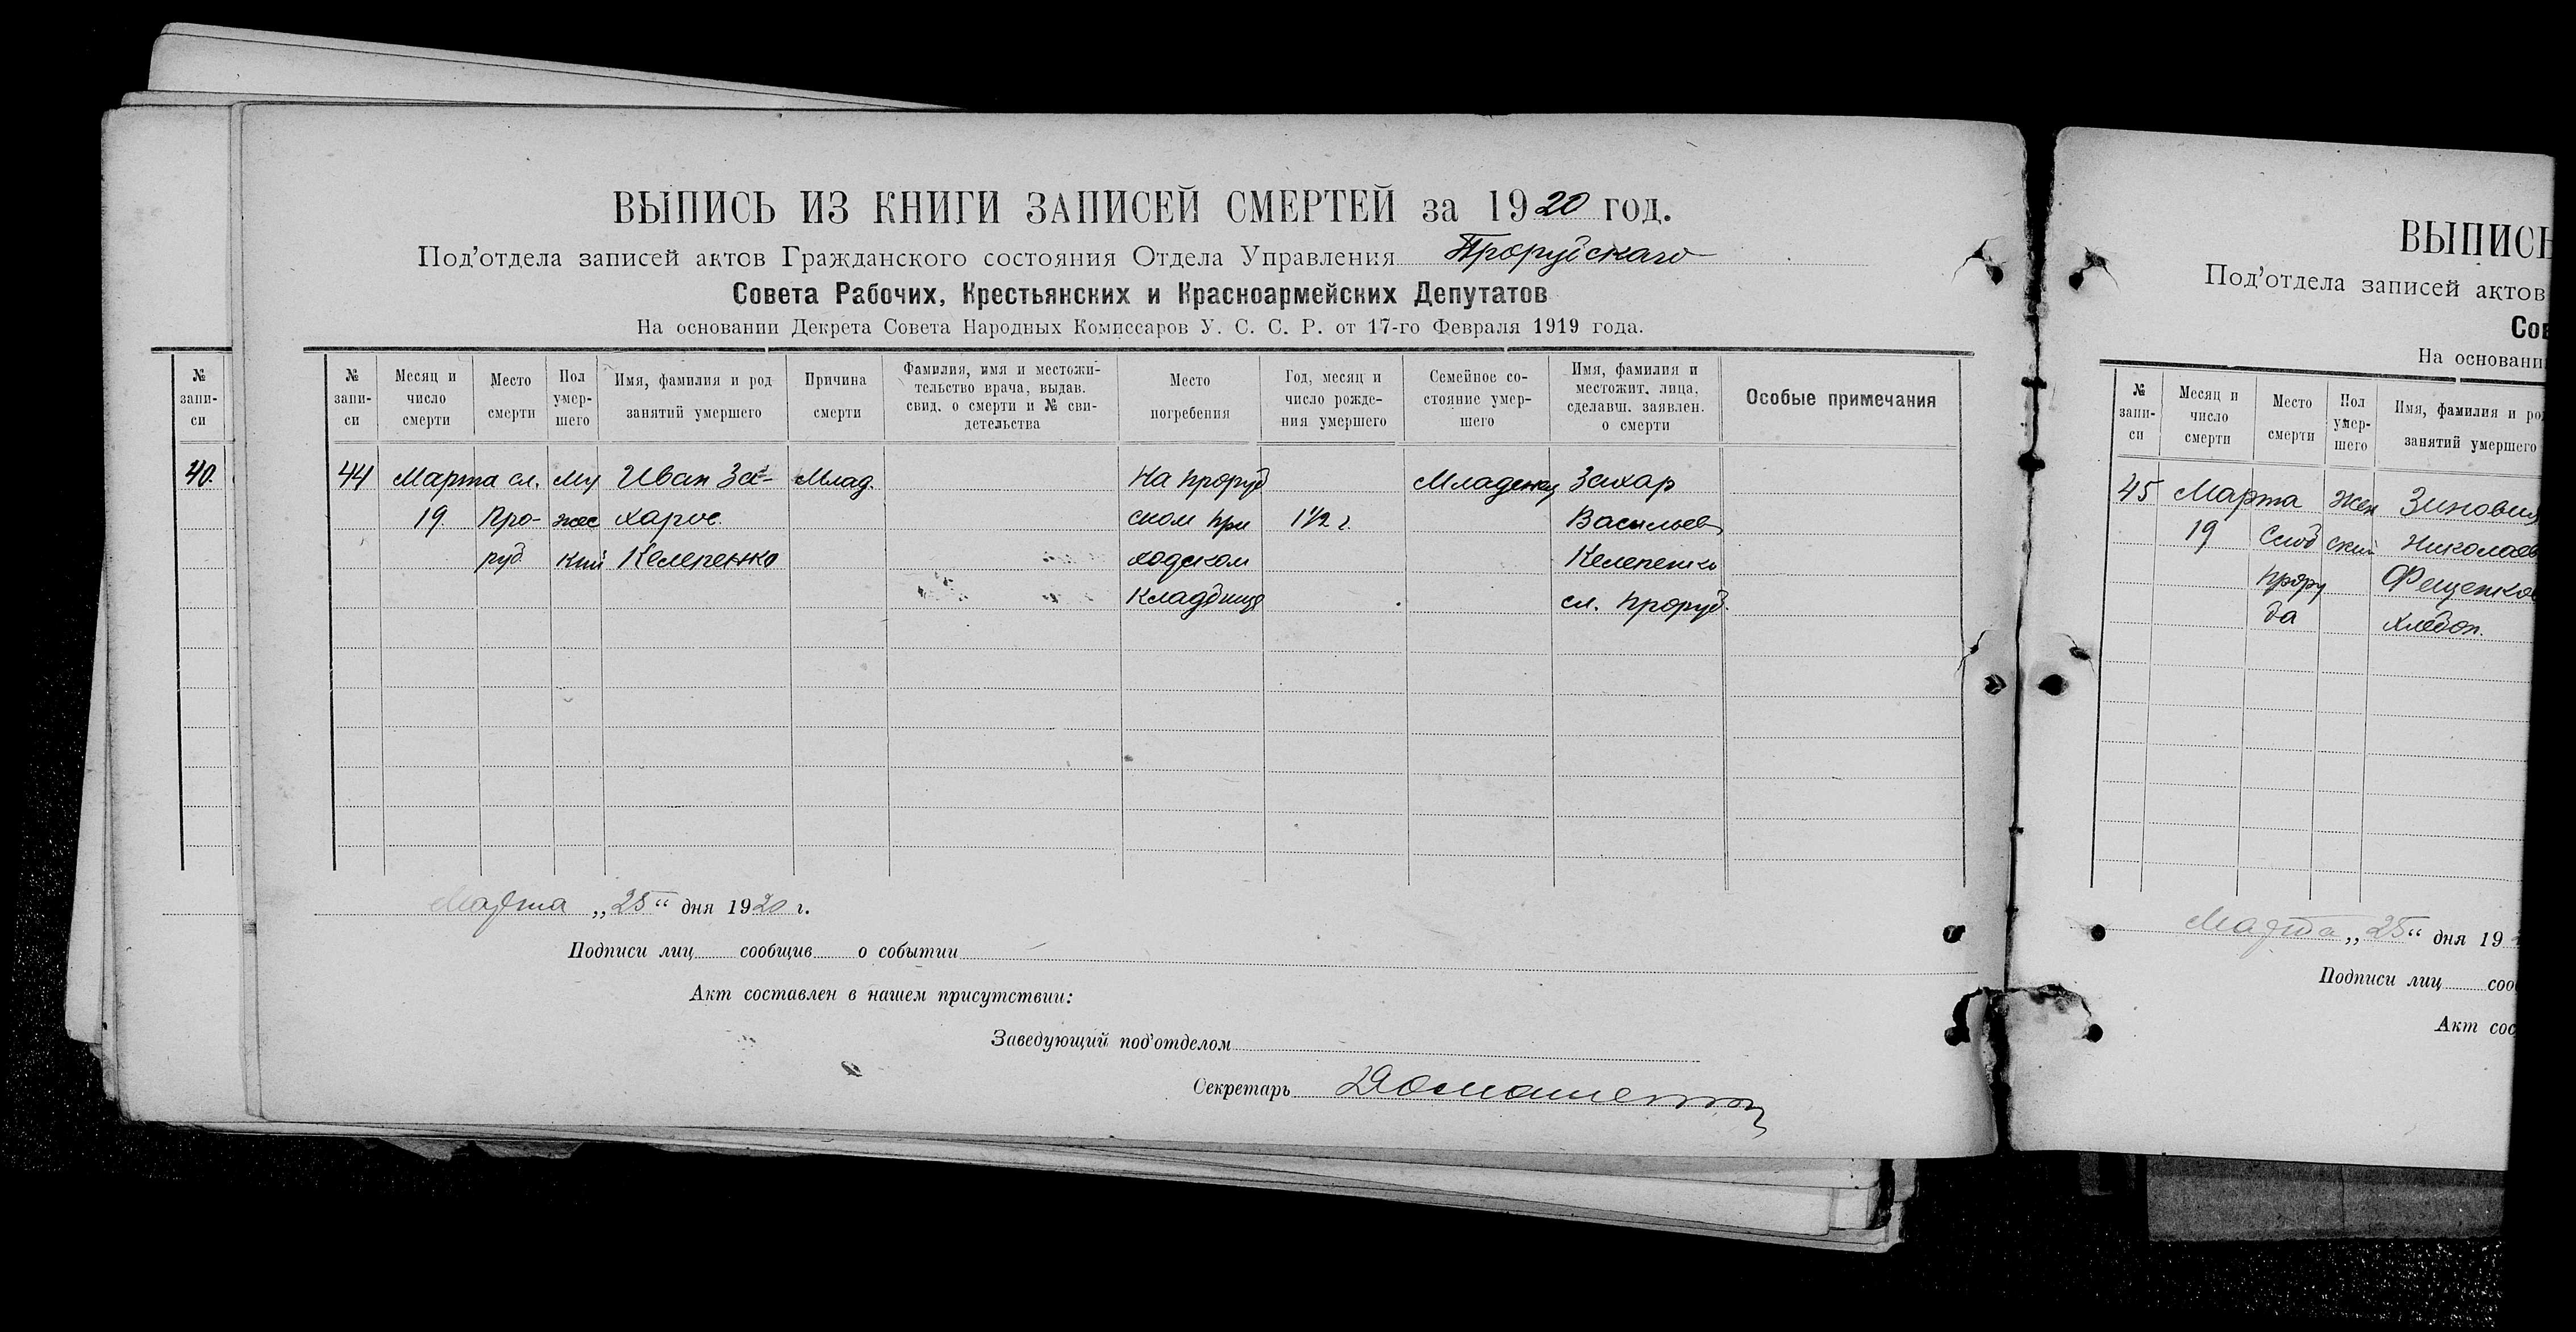 ВЫПИСЬ ИЗ КНИГИ ЗАПИСЕЙ СМЕРТЕЙ за 1920 год.
Под'отдела записей актов Гражданского состояния Отдела Управления
Совета Рабочих, Крестьянских и Красноармейских Депутатов
На основании Декрета Совета Народных Комиссаров У. С. С. Р. от 17-го Февраля 1919 года.
№ запи-си
40.
№ запи-си
Месяц и число смерти
Место смерти
Пол умер-шего
Имя, фамилия и род занятий умершего
Причина смерти
Фамилия, имя и местожи-тельство врача, выдав. свид. о смерти и № сви-детельства
Место погребения
Год, месяц и число рожде-ния умершего
Семейное со-стояние умер-шего
Имя, фамилия и местожит. лица, сделавш. заявлен. о смерти
Особые примечания
44 Марта сл. Му Иван За- Млад. На Проруб Младенец Захар
19 Про- жес харов. ском при 1 1/2 г. Васильев
руб кий Келепенко ходском Келепенко
кладбище сл. Проруб.
Марта „25“ дня 1920 г.
Подписи лиц сообщив о событии
Акт составлен в нашем присутствии:
Заведующий под'отделом
Секретарь
ВЫПИСЬ
Под'отдела записей актов
Сов
На основании
№ запи-си
Месяц и число смерти
Место смерти
Пол умер-шего
Имя, фамилия и род занятий умершего
45 Марта Жен Зиновия
19 Слоб ский Николаев
Прору
ба Хлебоп.
Марта „25“ дня 19
Подписи лиц сооб
Акт сос